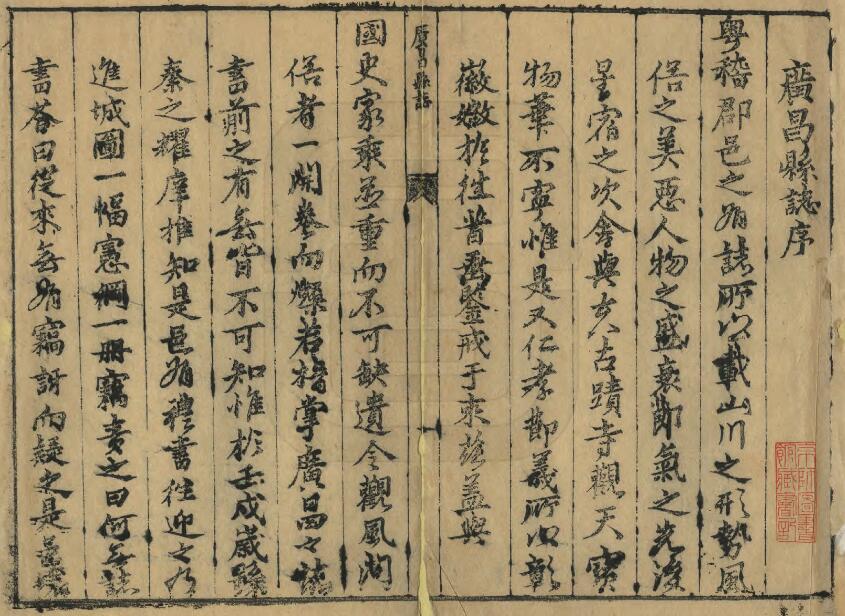 廣昌縣誌序
粵稽郡邑之有誌所以載山川之形勢風
俗之美惡人物之盛衰節氣之先後
星宿之次舍與夫古蹟寺觀天寶
物華不寧惟是又仁孝節義所以彰
徽懿於往昔垂鑒戒于來茲蓋與
廣昌縣誌
國史家乘並重而不可缺遺令觀風問
俗者一開卷而燦若指掌廣昌之誌
書前之有無皆不可知惟於壬戌歲
秦之耀摩推知是邑有穩書往迎之
進城圖一幅憲綱一冊竊責之曰何無誌
書答曰從來無有竊訝而疑之是